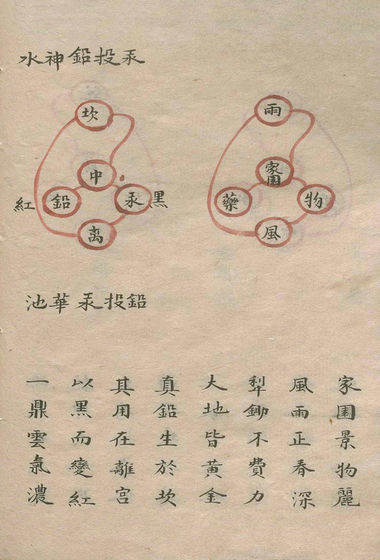 汞投鉛神水
雨
家園
物
藥
風
坎
中
黑
汞
鉛
紅
离
鉛投汞華池
家園景物麗
風雨正春深
犁鋤不費力
大地皆黃金
真鉛生於坎
其用在離宮
以黑而變紅
一鼎雲氣濃